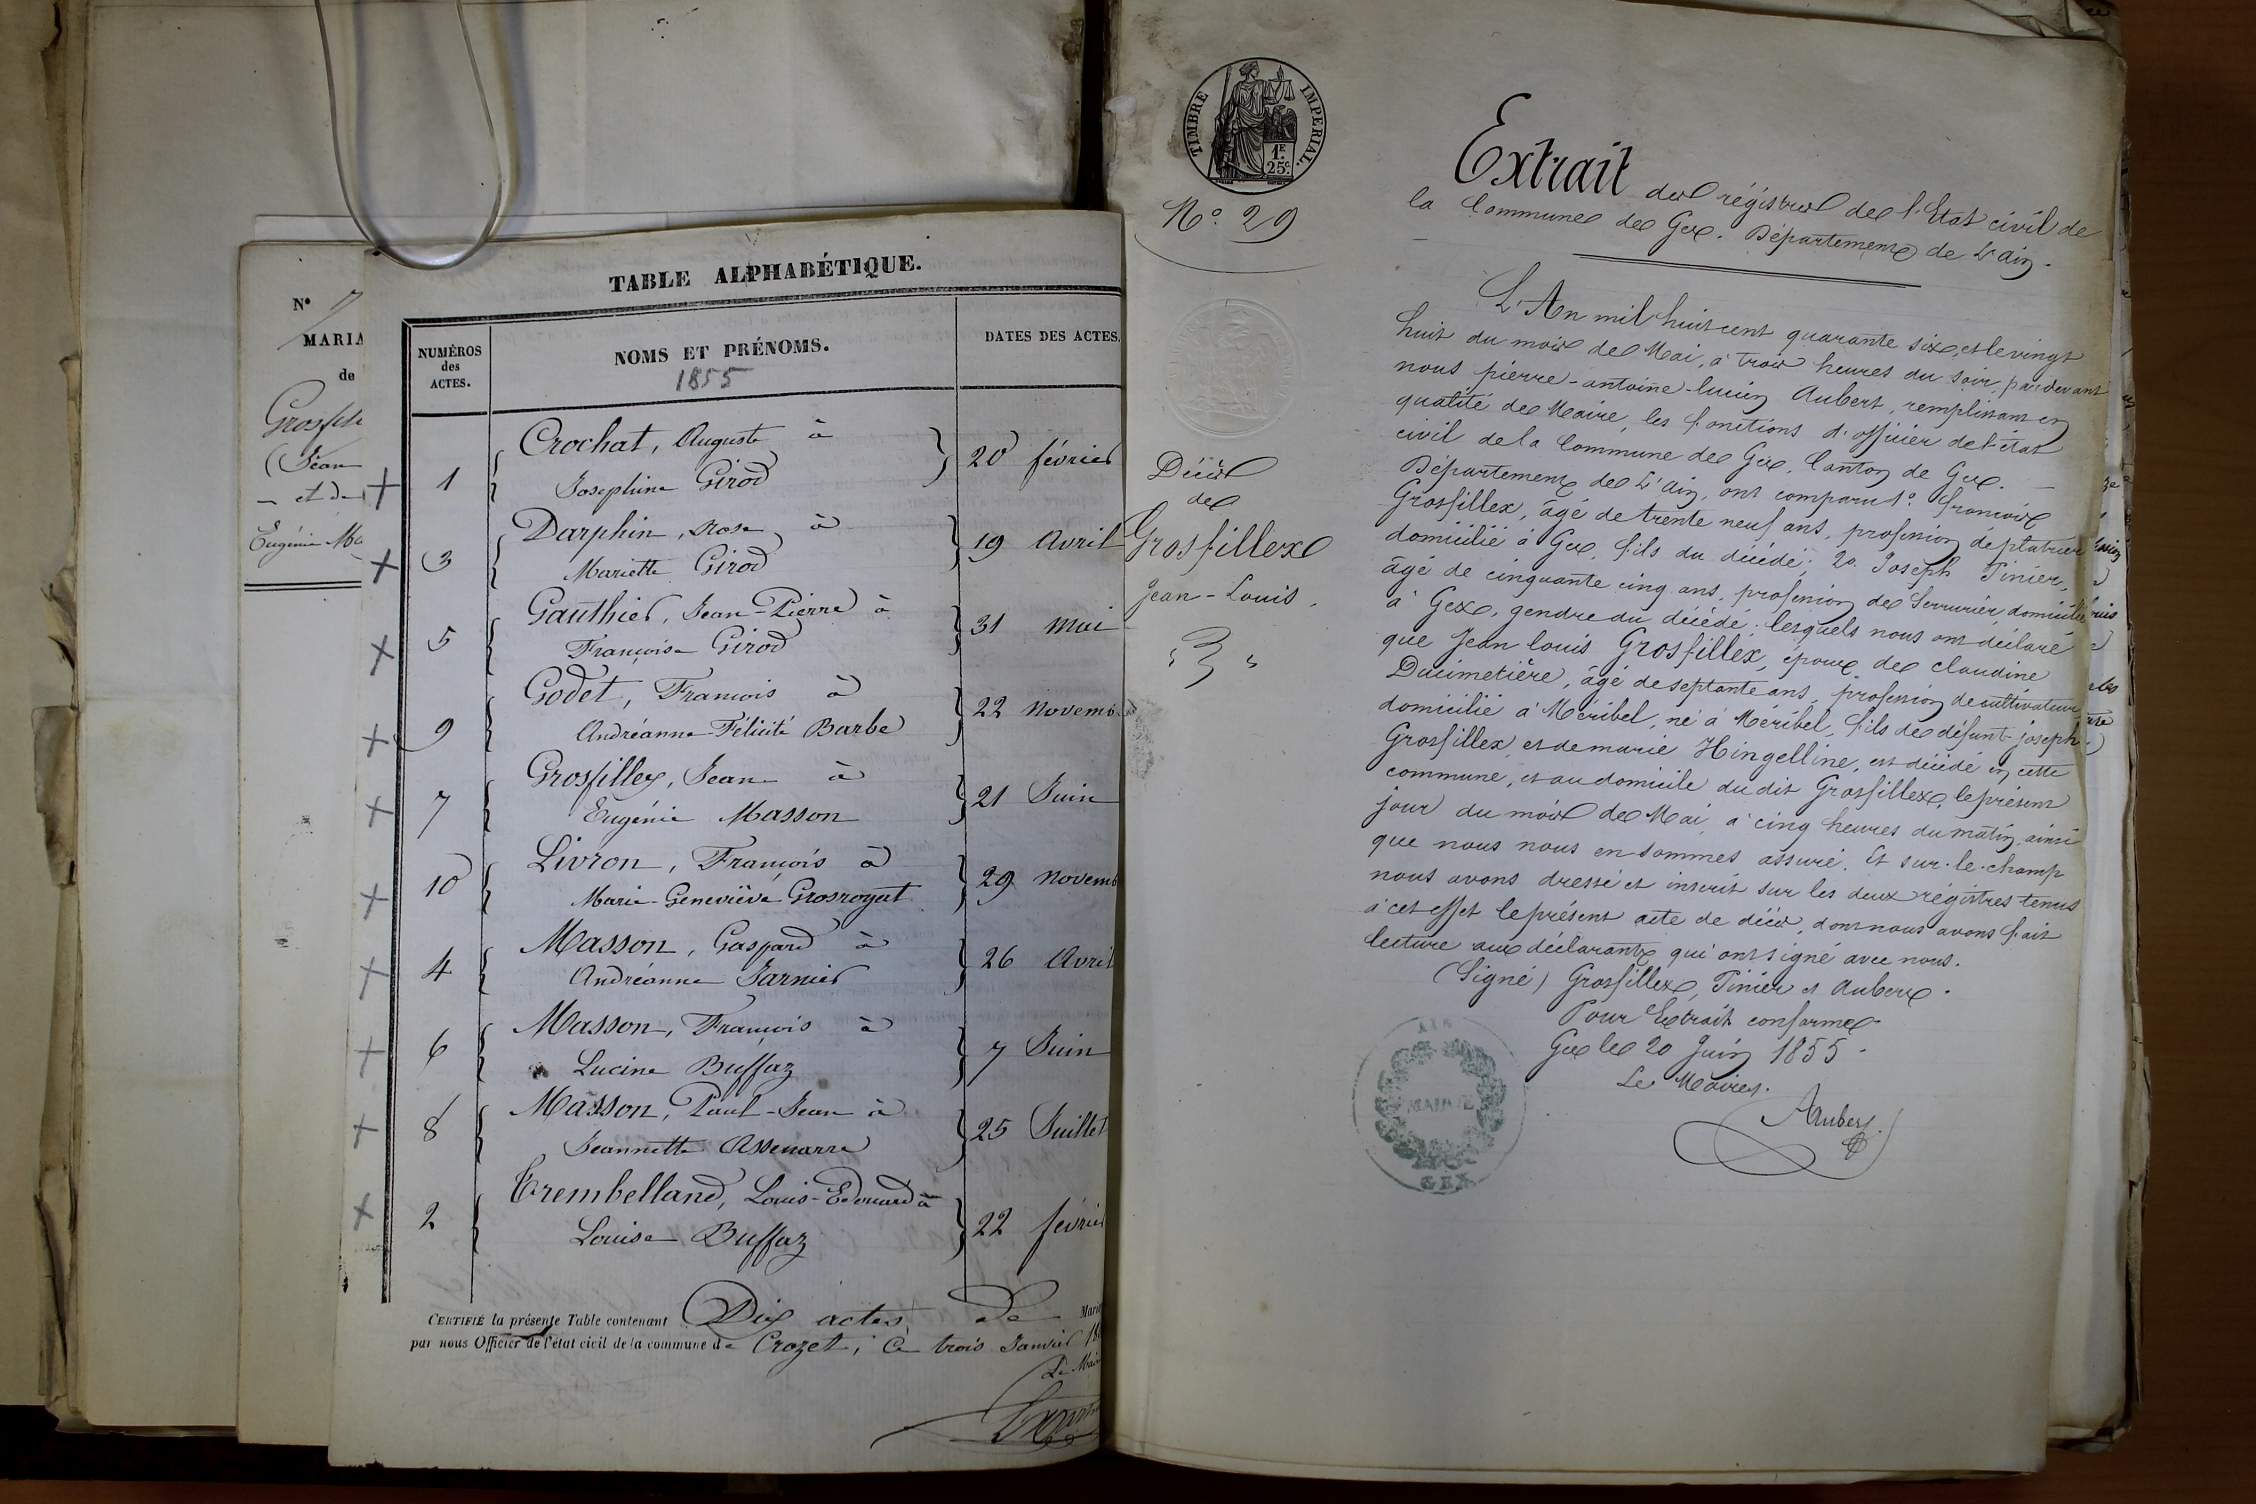 N° 7
MARIA
de
Grosfille
(Jean
et de
Eugénie Ma
TABLE ALPHABÉTIQUE.
NUMÉROS
des
ACTES.
NOMS ET PRÉNOMS.
1855
DATES DES ACTES.
Crochat, Auguste à
1 20 février
Josephine Girod
Darphin, Rose à
3 19 avril
Mariette Girod
Gauthier, Jean-Pierre à
5 31 mai
Françoise Girod
Godet, François à
9 22 novemb
Andréanne Félicité Barbe
Grosfillex, Jean à
7 21 Juin
Eugénie Masson
Livron, François à
10 29 novemb
Marie-Geneviève Grosroyat
Masson, Gaspard à
4 26 avril
Andréanne Jarnier
Masson, François à
6 7 Juin
Lucine Buffaz
Masson, Paul-Jean à
8 25 Juillet
Jeannette Assenarre
Trembelland, Louis-Edouard à
2 22 février
Louise Buffaz
CERTIFIÉ la présente Table contenant Dix actes de Maria
par nous Officier de l'état civil de la commune de Crozet, ce trois Janvier 18
Le Mair
TIMBRE IMPERIAL.
1F
25c.
N° 29
Décès
de
Grosfillex
Jean-Louis.
Extrait des régistres de l'Etat civil de
la Commune de Gex. Département de L'ain.
L'An mil huit cent quarante six, et le vingt
huit du mois de Mai, à trois heures du soir, pardevant
nous pierre-antoine-lucien Aubert, remplissant en
qualité de Maire, les fonctions d'officier de l'état
civil de la Commune de Gex, Canton de Gex.
Département de L'ain, ont comparu 1° François
Grosfillex, âgé de trente neuf ans, profession de platrier
domicilié à Gex, fils du décédé; 2° Joseph Tinier,
âgé de cinquante cinq ans, profession de Serrurier, domicilié
à Gex, gendre du décédé; lesquels nous ont déclaré
que Jean louis Grosfillex, époux de claudine
Ducimetière, âgé de septante ans, profession de cultivateur
domicilié à Méribel, né à Méribel, fils de défunt joseph
Grosfillex, et de marie Hingelline, est décédé en cette
commune, et au domicile du dit Grosfillex, le présent
jour du mois de Mai à cinq heures du matin, ainsi
que nous nous en sommes assuré. Et sur-le-champ
nous avons dressé et inscrit sur les deux régistres tenus
à cet effet le présent acte de décès, dont nous avons fait
lecture aux déclarants qui ont signé avec nous.
(Signé) Grosfillex, Tinier et Aubert.
Pour Extrait conforme
Gex le 20 Juin 1855.
Le Maire.
Aubert.
AIN
MAIRIE
GEX